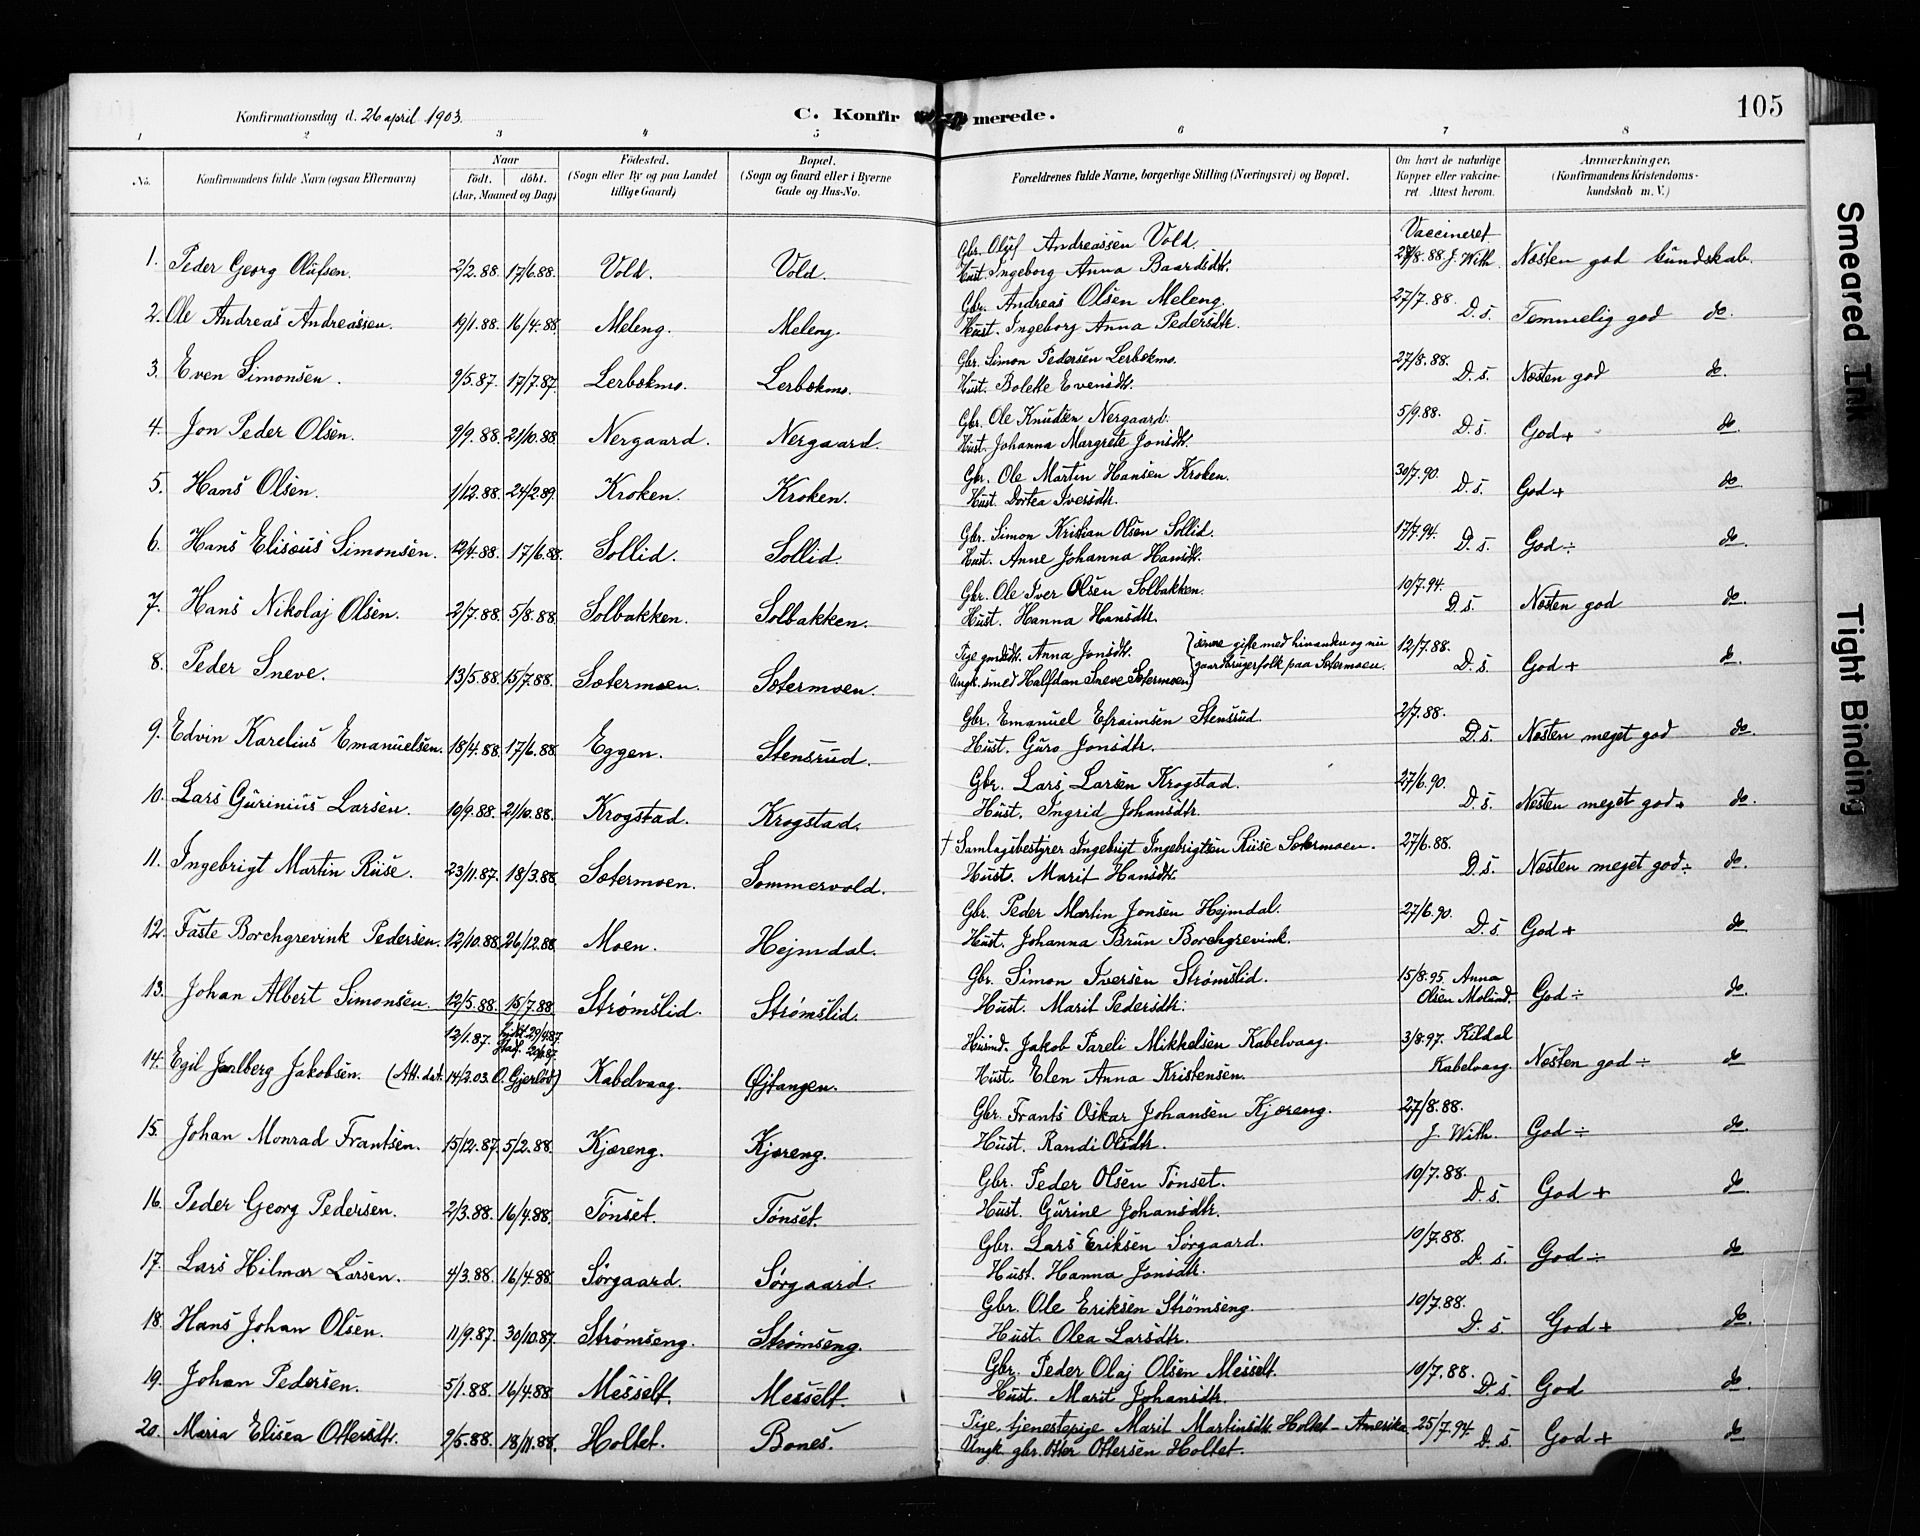 Konfirmationsdag d. 26 april 1903. C. Konfirmerede. 105
1 2 3 4 5 6 7 8
No. Konfirmandens fulde Navn (ogsaa Efternavn) Naar Født. døbt. (Aar, Maaned og Dag) Fødested. (Sogn eller By og paa Landet tillige Gaard) Bopæl. (Sogn og Gaard eller i Byerne Gade og Hus-No. Forældrenes fulde Navne, borgerlige Stilling (Næringsvei) og Bopæl. Om havt de naturlige Kopper eller vakcineret Attest herom. Anmærkninger. (Konfirmandens Kristendomskundskab m. V.)
Vaccineret
1. Peder Georg Olufsen. 2/2.88. 17/6.88. Vold. Vold. Gbr. Oluf Andreassen Vold. Hust. Ingeborg Anna Baardsdtr. 27/8.88 J. With. Næsten god kundskab.
2. Ole Andreas Andreassen. 19/1.88. 16/4.88. Meleng. Meleng. Gbr. Andreas Olsen Meleng. Hust. Ingeborg Anna Pedersdtr. 27/7.88. D. s. Temmelig god do.
3. Even Simonsen. 9/5.87. 17/7.87. Lerbækmo. Lerbækmo. Gbr. Simon Pedersen Lerbækmo. Hust. Bolette Evensdt. 27/8.88. D. s. Næsten god do.
4. Jon Peder Olsen. 9/9.88. 21/10.88. Nergaard. Nergaard. Gbr. Ole Knudsen Nergaard. Hust. Johanna Margrete Jonsdt. 5/9.88. D. s. God + do.
5. Hans Olsen. 1/12.88. 24/2.89. Kroken. Kroken. Gbr. Ole Martin Hansen Kroken. Hust. Dortea Iversdtr. 30/7.90. D. s. God + do.
6. Hans Elisæus Simonsen. 12/4.88. 17/6.88. Sollid. Sollid. Gbr. Simon Kristian Olsen Sollid. Hust. Anne Johanna Hansdt. 17/7.94. D. s. God ÷ do.
7. Hans Nikolaj Olsen. 2/7.88. 5/8.88. Solbakken. Solbakken. Gbr. Ole Iver Olsen Solbakken. Hust. Hanna Hansdtr. 10/7.94. D. s. Næsten god do.
8. Peder Sneve. 13/5.88. 15/7.88. Sætermoen. Sætermoen. Pige gmdsdt. Anna Jonsdt. Ungk. smed Halfdan Sneve Sætermoen } gifte med hinanden og nu gaardbrugerfolk paa Sætermoen. 12/7.88. D. s. God + do.
9. Edvin Karelius Emanuelsen. 18/4.88. 17/6.88. Eggen. Stensrud. Gbr. Emanuel Efraimsen Stensrud. Hust. Guro Jonsdtr. 2/7.88. D. s. Næsten meget god do.
10. Lars Gurinius Larsen. 10/9.88. 21/10.88. Krogstad. Krogstad. Gbr. Lars Larsen Krogstad. Hust. Ingrid Johansdtr. 27/6.90. D. s. Næsten meget god + do.
11. Ingebrigt Martin Riise. 23/11.87. 18/3.88. Sætermoen. Sommervold. † Samlagsbestyrer Ingebrigt Ingebrigtsen Riise Sætermoen. Hust. Marit Hansdt. 27/6.88. D. s. Næsten meget god ÷ do.
12. Faste Borchgrevink Pedersen. 12/10.88. 26/12.88. Moen. Hejmdal. Gbr. Peder Martin Jonsen Hejmdal. Hust. Johanna Brun Borchgrevink. 27/6.90. D. s. God + do
13. Johan Albert Simonsen. 12/5.88. 15/7.88. Strømslid. Strømslid. Gbr. Simon Iversen Strømslid. Hust. Marit Pedersdtr. 15/8.95. Anna Olsen Molund. God ÷ do.
14. Egil Jarlberg Jakobsen. (Att. dat. 14/2.03. O. Gjerløw) 12/1.87. 29/4.87. Kabelvaag. Øjtangen. Husmd. Jakob Pareli Mikkelsen Kabelvaag. Hust. Elen Anna Kristensen. 3/8.97. Kildal Kabelvaag Næsten god ÷ do
15. Johan Monrad Frantsen. 15/12.87. 5/2.88. Kjæreng. Kjæreng. Gbr. Frants Oskar Johansen Kjæreng. Hust. Randi Olsdtr. 27/8.88. J. With. God ÷ do.
16. Peder Georg Pedersen. 2/3.88. 16/4.88. Tønset. Tønset. Gbr. Peder Olsen Tønset. Hust. Gurine Johansdtr. 10/7.88. D. s. God + do.
17. Lars Hilmar Larsen. 4/3.88. 16/4.88. Sørgaard. Sørgaard. Gbr. Lars Eriksen Sørgaard. Hust. Hanna Jonsdtr. 10/7.88. D. s. God ÷ do
18. Hans Johan Olsen. 11/9.87. 30/10.87. Strømseng. Strømseng. Gbr. Ole Eriksen Strømseng. Hust. Olea Larsdtr. 10/7.88. D. s. God + do.
19. Johan Pedersen. 5/1.88. 16/4.88. Messelt. Messelt. Gbr. Peder Olaj Olsen Messelt. Hust. Marit Johansdtr. 10/7.88. D. s. God do.
20. Maria Elisea Ottersdt. 9/5.88. 18/11.88. Holtet. Bones. Pige, tjenestepige Marit Martinsdt. Holtet – Amerika. Ungk. gbr. Otter Ottersen Holtet. 25/7.94. D. s. God + do
Smeared Ink
Tight Binding